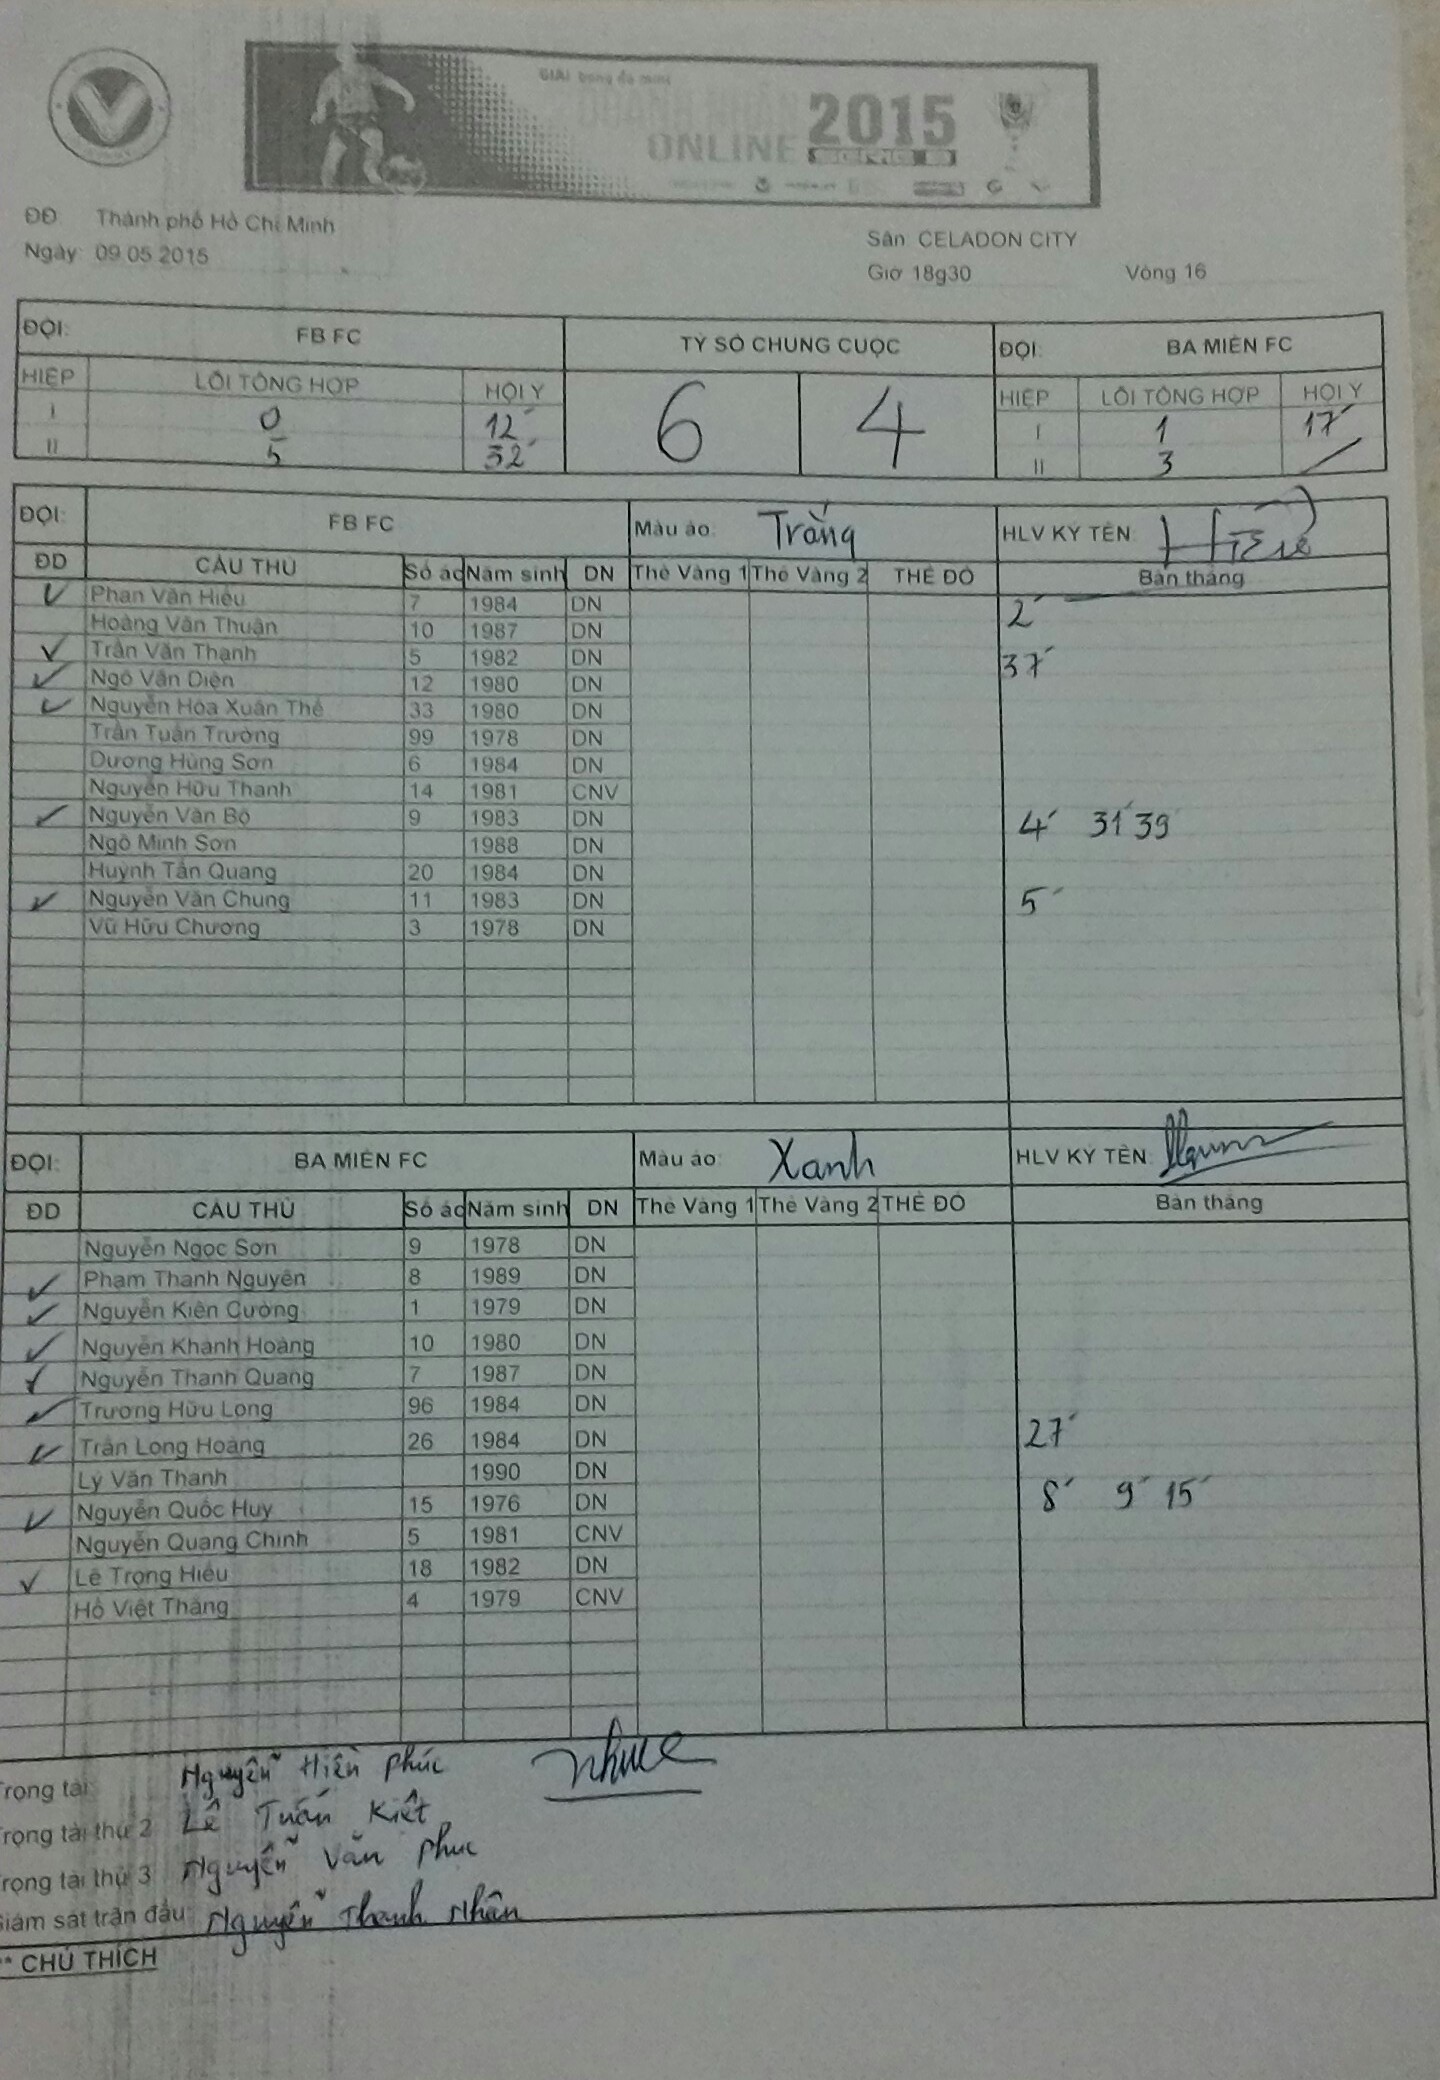 GIẢI bóng đá mini
DOANH NHÂN
ONLINE 2015
SERIE B
ĐĐ Thành phố Hồ Chí Minh
Ngày: 09.05.2015
Sân CELADON CITY
Giờ 18g30 Vòng 16
ĐỘI: FB FC TỶ SỐ CHUNG CUỘC ĐỘI: BA MIỀN FC
HIỆP LỖI TỔNG HỢP HỘI Ý 6 4 HIỆP LỖI TỔNG HỢP HỘI Ý
I 0 12' I 1 17'
II 5 32' II 3 /
ĐỘI: FB FC Màu áo: Trắng HLV KÝ TÊN:
ĐD CẦU THỦ Số áo Năm sinh DN Thẻ Vàng 1 Thẻ Vàng 2 THẺ ĐỎ Bàn thắng
✓ Phan Văn Hiếu 7 1984 DN 2'
Hoàng Văn Thuận 10 1987 DN
✓ Trần Văn Thạnh 5 1982 DN 37'
✓ Ngô Văn Diện 12 1980 DN
✓ Nguyễn Hòa Xuân Thế 33 1980 DN
Trần Tuấn Trường 99 1978 DN
Dương Hùng Sơn 6 1984 DN
Nguyễn Hữu Thanh 14 1981 CNV
✓ Nguyễn Văn Bộ 9 1983 DN 4' 31' 39
Ngô Minh Sơn 1988 DN
Huỳnh Tấn Quang 20 1984 DN
✓ Nguyễn Văn Chung 11 1983 DN 5'
Vũ Hữu Chương 3 1978 DN
ĐỘI: BA MIỀN FC Màu áo: Xanh HLV KÝ TÊN:
ĐD CẦU THỦ Số áo Năm sinh DN Thẻ Vàng 1 Thẻ Vàng 2 THẺ ĐỎ Bàn thắng
Nguyễn Ngọc Sơn 9 1978 DN
✓ Phạm Thanh Nguyên 8 1989 DN
✓ Nguyễn Kiên Cường 1 1979 DN
✓ Nguyễn Khánh Hoàng 10 1980 DN
✓ Nguyễn Thanh Quang 7 1987 DN
✓ Trương Hữu Long 96 1984 DN
✓ Trần Long Hoàng 26 1984 DN 27'
Lý Văn Thanh 1990 DN
✓ Nguyễn Quốc Huy 15 1976 DN 8' 9' 15'
Nguyễn Quang Chính 5 1981 CNV
✓ Lê Trọng Hiếu 18 1982 DN
Hồ Việt Thắng 4 1979 CNV
Trọng tài: Nguyễn Hiền Phúc
Trọng tài thứ 2 Lê Tuấn Kiệt
Trọng tài thứ 3 Nguyễn Văn Phuc
Giám sát trận đấu: Nguyễn Thanh Nhân
** CHÚ THÍCH